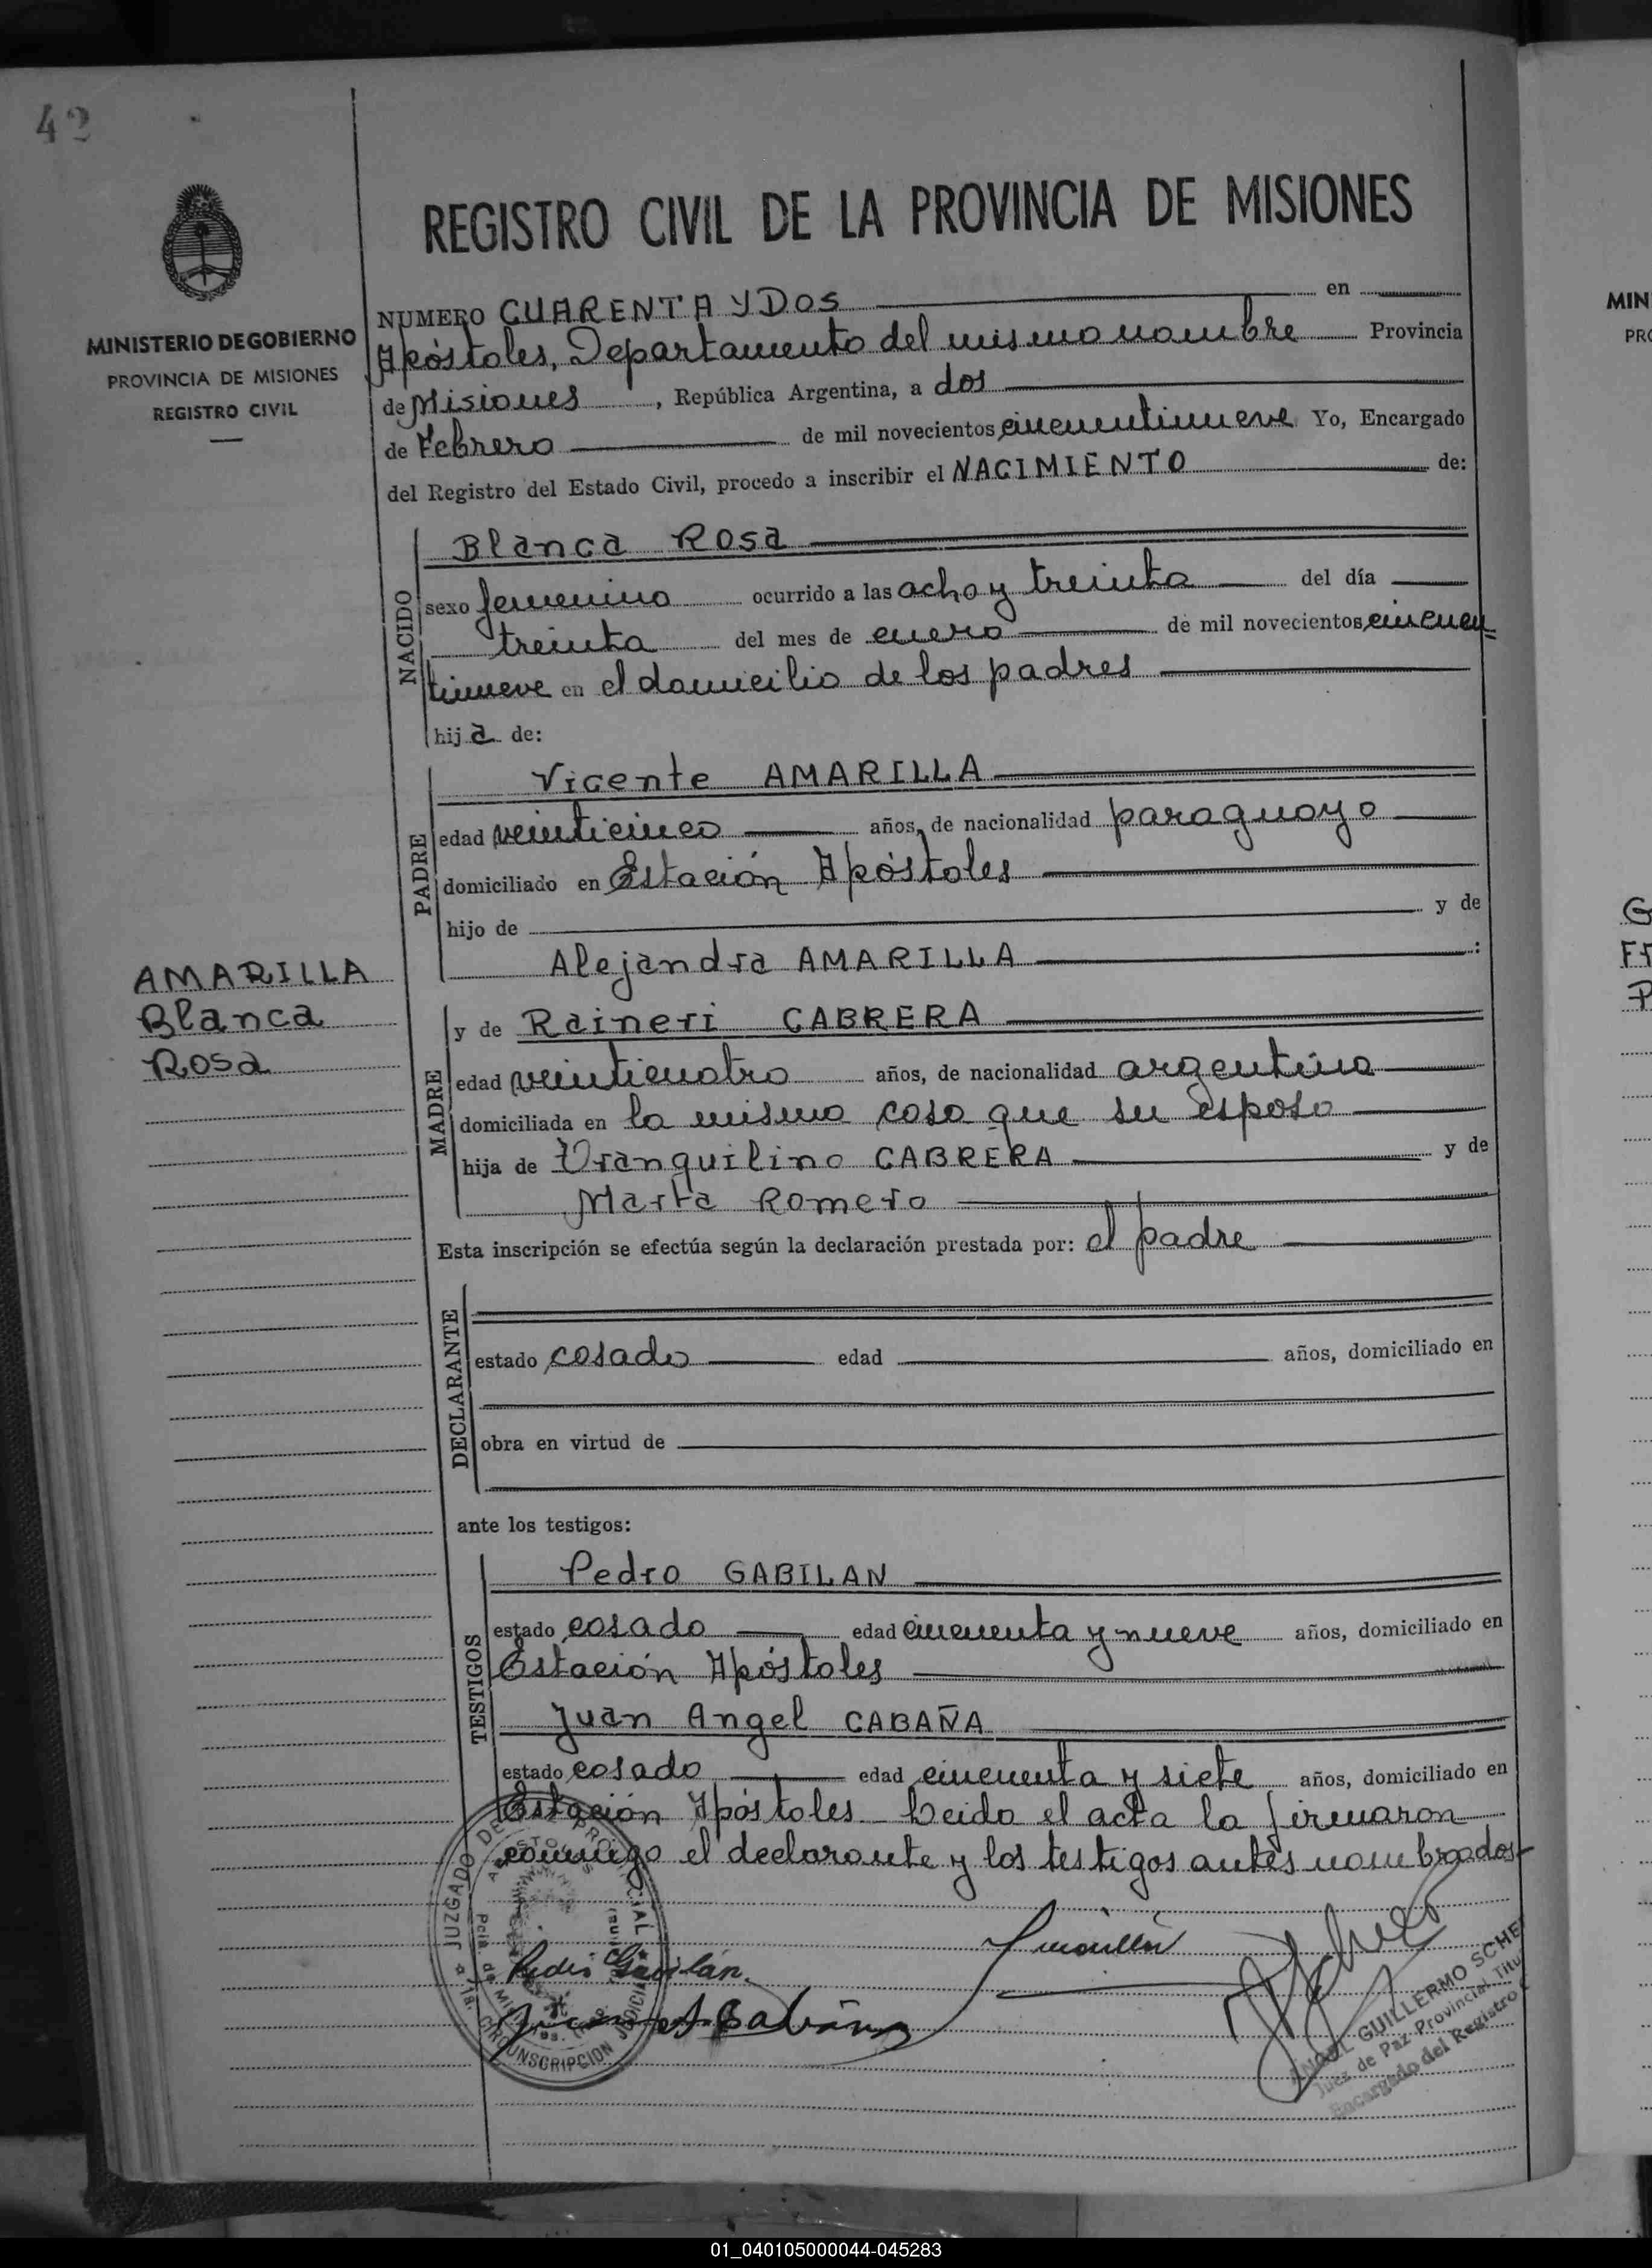 42
REGISTRO CIVIL DE LA PROVINCIA DE MISIONES
MINISTERIO DE GOBIERNO
PROVINCIA DE MISIONES
REGISTRO CIVIL
NUMERO CUARENTA Y DOS en
Apóstoles, Departamento del mismo nombre Provincia
de Misiones, República Argentina, a dos
de Febrero de mil novecientos cincuentinueve Yo, Encargado
del Registro del Estado Civil, procedo a inscribir el NACIMIENTO de:
NACIDO
Blanca Rosa
sexo femenino ocurrido a las ocho y treinta del día
treinta del mes de enero de mil novecientos cincuen=
tinueve en el domicilio de los padres
hija de:
PADRE
Vicente AMARILLA
edad veinticinco años, de nacionalidad paraguayo
domiciliado en Estación Apóstoles
hijo de y de
Alejandra AMARILLA :
AMARILLA
Blanca
Rosa
MADRE
y de Raineri CABRERA
edad veinticuatro años, de nacionalidad argentina
domiciliada en la misma casa que su esposo
hija de Tranquilino CABRERA y de
Marta Romero
Esta inscripción se efectúa según la declaración prestada por: el padre
DECLARANTE
estado casado edad años, domiciliado en
obra en virtud de
ante los testigos:
TESTIGOS
Pedro GABILAN
estado casado edad cincuenta y nueve años, domiciliado en
Estación Apóstoles
Juan Angel CABAÑA
estado casado edad cincuenta y siete años, domiciliado en
Estación Apóstoles. Leida el acta la firmaron
conmigo el declarante y los testigos antes nombrados
JUZGADO DE PROVINCIAL
CIRCUNSCRIPCION JUDICIAL
Pcia. de
Pedro Gavilán.
Amarilla
Juan A. Cabaña
ANGEL GUILLERMO SCHE
Juez de Paz Provincial Titu
Encargado del Registro
MIN
PRO
G
Fr
P
01_040105000044-045283